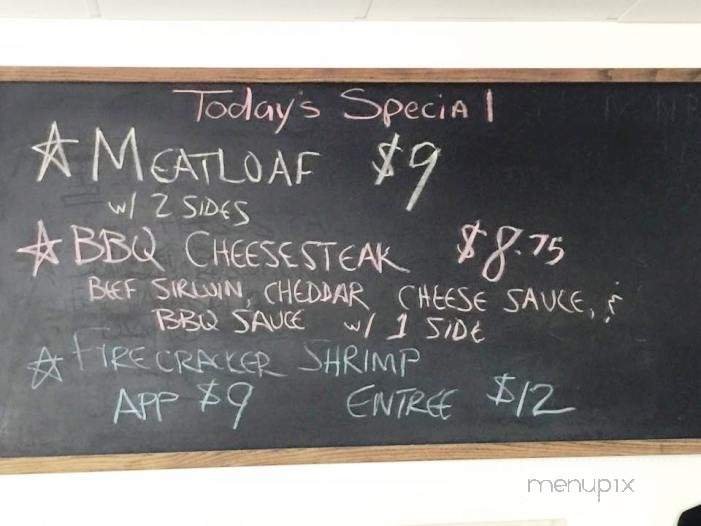 Today's Special
☆ MEATLOAF $9
w/ 2 SIDES
☆ BBQ CHEESESTEAK $8.75
BEEF SIRLOIN, CHEDDAR CHEESE SAUCE, &
BBQ SAUCE w/ 1 SIDE
☆ FIRECRACKER SHRIMP
APP $9 ENTREE $12
menupix